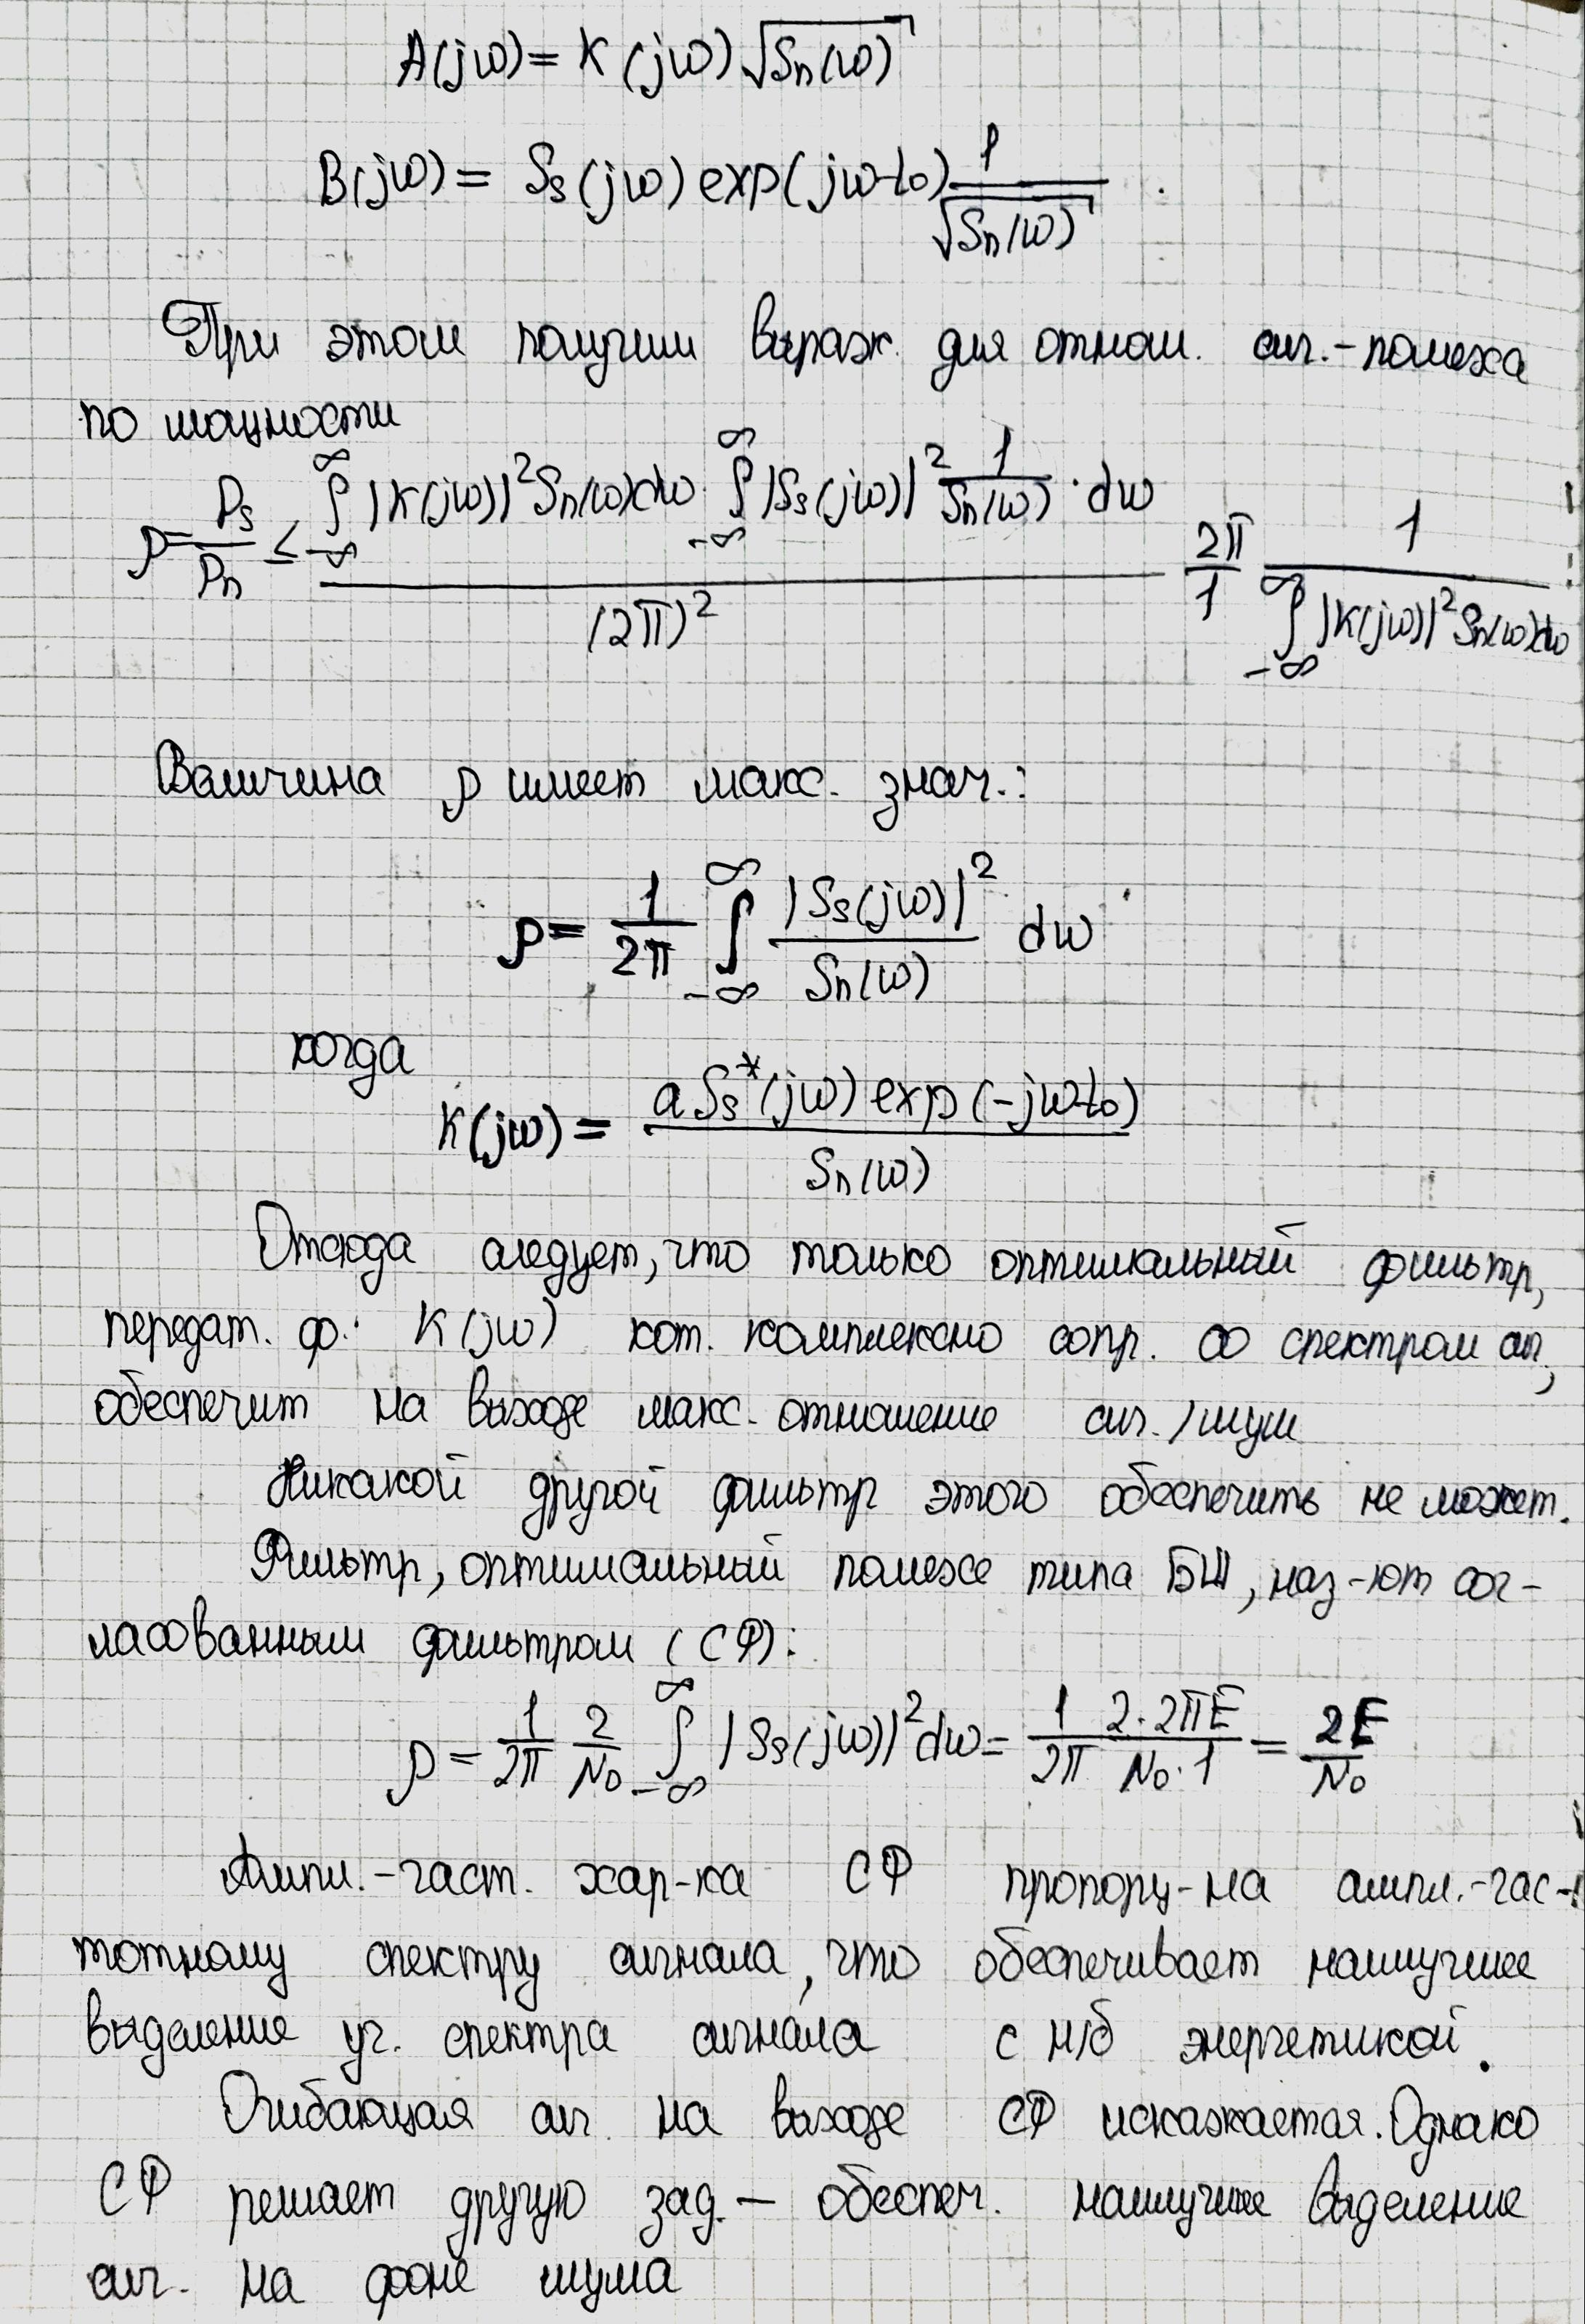 A(jω) = K(jω) √Sn(ω)
B(jω) = Ss(jω) exp(jωt₀) 1/√Sn(ω)
При этом получим выраж. для отнош. сиг.-помеха
по мощности
ρ = Ps/Pn ≤ ∫_{-∞}^{∞} |K(jω)|² Sn(ω)dω · ∫_{-∞}^{∞} |Ss(jω)|² 1/Sn(ω) · dω / (2π)² 2π/1 1/∫_{-∞}^{∞} |K(jω)|² Sn(ω)dω
Величина ρ имеет макс. знач.:
ρ = 1/2π ∫_{-∞}^{∞} |Ss(jω)|²/Sn(ω) dω
когда
K(jω) = aSs*(jω) exp(-jωt₀)/Sn(ω)
Отсюда следует, что только оптимальный фильтр,
передат. ф. K(jω) кот. комплексно сопр. со спектром сиг,
обеспечит на выходе макс. отношение сиг./шум
Никакой другой фильтр этого обеспечить не может.
Фильтр, оптимальный помехе типа БШ, наз-ют сог-
ласованным фильтром (СФ):
ρ = 1/2π 2/N₀ ∫_{-∞}^{∞} |Ss(jω)|² dω = 1/2π 2·2πE/N₀·1 = 2E/N₀
Ампл.-част. хар-ка СФ пропорц-на ампл.-час-
тотному спектру сигнала, что обеспечивает наилучшее
выделение уч. спектра сигнала с н/б энергетикой.
Огибающая сиг. на выходе СФ искажается. Однако
СФ решает другую зад. – обеспеч. наилучшее выделение
сиг. на фоне шума